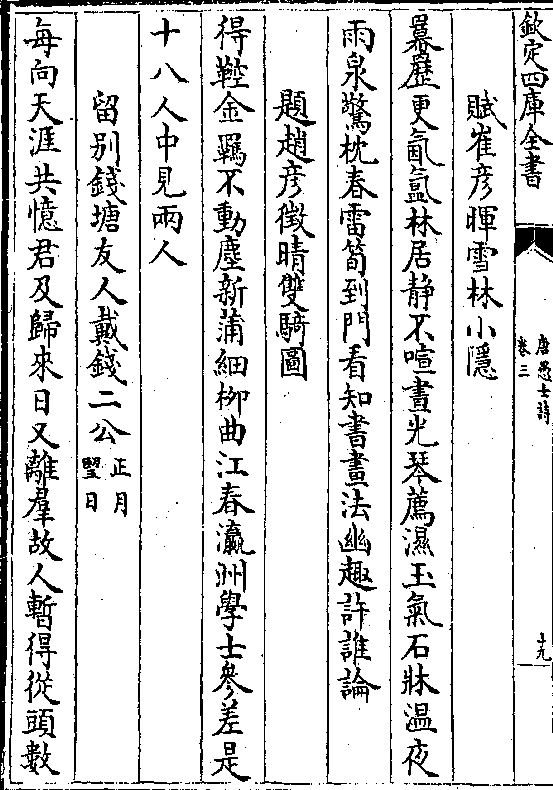 欽定四庫全書
唐愚士詩
卷三
十九
賦崔彦暉雪林小隱
羃歴更氤氲林居静不喧晝光琴薦濕玉氣石牀温夜
雨泉驚枕春雷筍到門看知書畫法幽趣許誰論
題趙彦徴晴雙騎圖
得鞚金羈不動塵新蒲細栁曲江春瀛洲學士參差是
十八人中見兩人
留别錢塘友人戴錢二公正月
朢日
每向天涯共憶君及歸來日又離羣故人暫得從頭數